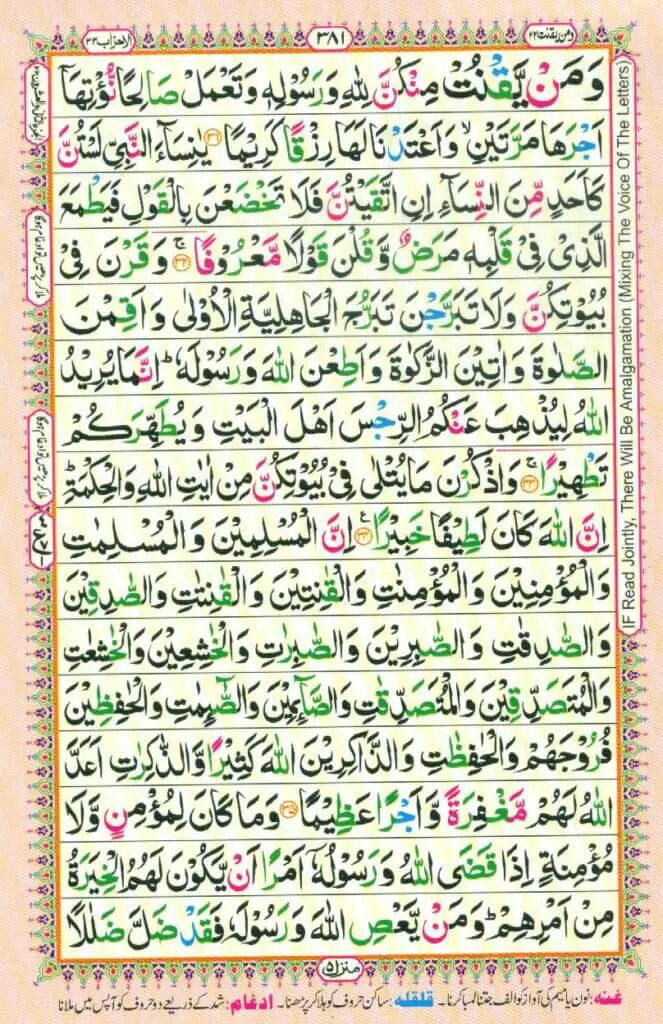 ومن یقنت ٢٢
٣٨١
الاحزاب ٣٣
وَمَنْ يَّقْنُتْ مِنْكُنَّ لِلّٰهِ وَرَسُوْلِهٖ وَتَعْمَلْ صَالِحًا نُّؤْتِهَاۤ
اَجْرَهَا مَرَّتَيْنِۙ وَاَعْتَدْنَا لَهَا رِزْقًا كَرِيْمًا ﴿٣١﴾ يٰنِسَآءَ النَّبِيِّ لَسْتُنَّ
كَاَحَدٍ مِّنَ النِّسَآءِ اِنِ اتَّقَيْتُنَّ فَلَا تَخْضَعْنَ بِالْقَوْلِ فَيَطْمَعَ
الَّذِيْ فِيْ قَلْبِهٖ مَرَضٌ وَّقُلْنَ قَوْلًا مَّعْرُوْفًا ﴿٣٢﴾ۚ وَقَرْنَ فِيْ
بُيُوْتِكُنَّ وَلَا تَبَرَّجْنَ تَبَرُّجَ الْجَاهِلِيَّةِ الْاُوْلٰى وَاَقِمْنَ
الصَّلٰوةَ وَاٰتِيْنَ الزَّكٰوةَ وَاَطِعْنَ اللّٰهَ وَرَسُوْلَهٗؕ اِنَّمَا يُرِيْدُ
اللّٰهُ لِيُذْهِبَ عَنْكُمُ الرِّجْسَ اَهْلَ الْبَيْتِ وَيُطَهِّرَكُمْ
تَطْهِيْرًا ﴿٣٣﴾ۚ وَاذْكُرْنَ مَا يُتْلٰى فِيْ بُيُوْتِكُنَّ مِنْ اٰيٰتِ اللّٰهِ وَالْحِكْمَةِؕ
اِنَّ اللّٰهَ كَانَ لَطِيْفًا خَبِيْرًا ﴿٣٤﴾ع اِنَّ الْمُسْلِمِيْنَ وَالْمُسْلِمٰتِ
وَالْمُؤْمِنِيْنَ وَالْمُؤْمِنٰتِ وَالْقٰنِتِيْنَ وَالْقٰنِتٰتِ وَالصّٰدِقِيْنَ
وَالصّٰدِقٰتِ وَالصّٰبِرِيْنَ وَالصّٰبِرٰتِ وَالْخٰشِعِيْنَ وَالْخٰشِعٰتِ
وَالْمُتَصَدِّقِيْنَ وَالْمُتَصَدِّقٰتِ وَالصَّآئِمِيْنَ وَالصّٰٓئِمٰتِ وَالْحٰفِظِيْنَ
فُرُوْجَهُمْ وَالْحٰفِظٰتِ وَالذَّاكِرِيْنَ اللّٰهَ كَثِيْرًا وَّالذّٰكِرٰتِ اَعَدَّ
اللّٰهُ لَهُمْ مَّغْفِرَةً وَّاَجْرًا عَظِيْمًا ﴿٣٥﴾ وَمَا كَانَ لِمُؤْمِنٍ وَّلَا
مُؤْمِنَةٍ اِذَا قَضَى اللّٰهُ وَرَسُوْلُهٗۤ اَمْرًا اَنْ يَّكُوْنَ لَهُمُ الْخِيَرَةُ
مِنْ اَمْرِهِمْؕ وَمَنْ يَّعْصِ اللّٰهَ وَرَسُوْلَهٗ فَقَدْ ضَلَّ ضَلٰلًا
IF Read Jointly, There Will Be Amalgamation (Mixing The Voice Of The Letters)
منزل ٥
غنه: نون یا میم کی آواز کو الف جتنا لمبا کرنا۔ قلقله: ساکن حروف کو ہلا کر پڑھنا۔ ادغام: شد کے ذریعے دو حروف کو آپس میں ملانا